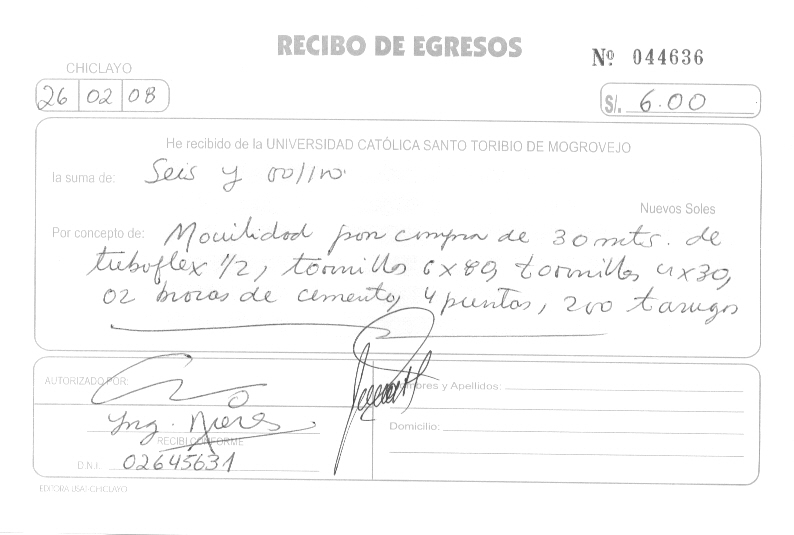 RECIBO DE EGRESOS
Nº 044636
CHICLAYO
26 02 08
S/. 6.00
He recibido de la UNIVERSIDAD CATÓLICA SANTO TORIBIO DE MOGROVEJO
la suma de: Seis y 00/100
Nuevos Soles
Por concepto de: Movilidad por compra de 30 mts. de
tuboflex 1/2, tornillos 6x80, tornillos 4x30,
02 brocas de cemento, 4 puntas, 200 tarugos
AUTORIZADO POR:
Nombres y Apellidos:
Ing.
RECIBI CONFORME
Domicilio:
D.N.I. 02645631
EDITORA USAT-CHICLAYO